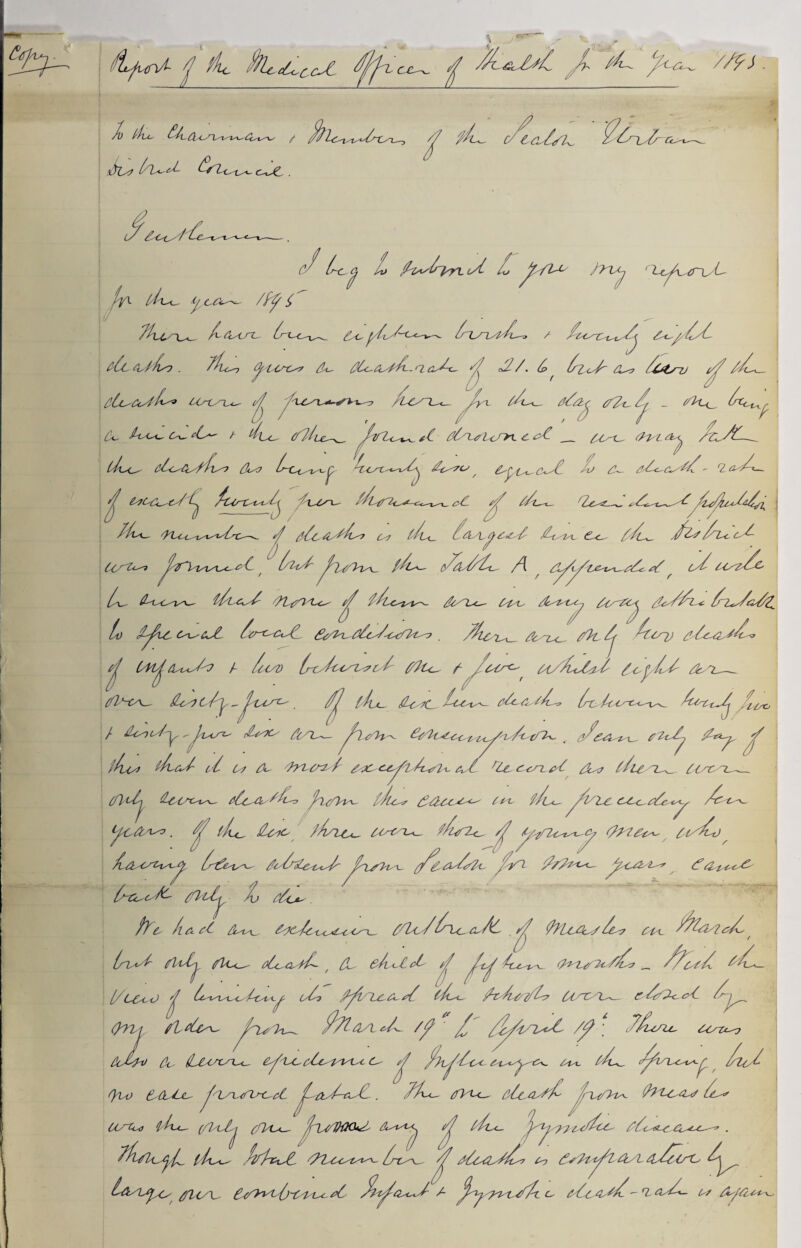 Copy.
Report of the Medical Officer of Health for the Year 1895.
To the Chairman & Members of the Seaton Urban
District Council.
Gentlemen.
I beg to submit to you my report
for the year 1895
There have been eighteen births & twenty eight
deaths. This gives a death-rate of 21.6, but as two of the
deaths were of persons here for the day only - one being
a suicide & the other found drowned - we may take
the deaths as being twenty six, equal to a death-rate
of exactly twenty per thousand of the resident population
The number of deaths is the largest since the District
was formed, but from the Table A, appended, it will
be seen that none of them are in any way attributable
to special local conditions. There are only two deaths
of infants & two betwixt one & five, whilst eight are
over sixty-five. Of the sixteen deaths between twenty five
& sixty-five six are from Consumption. I can only say of
this that it is a most exceptional record as there were
only seven deaths from this cause in the preceeding ten
years. Of the six, three were those of young men, who,
having been absent from Seaton for some years, came
back only to die.
We had an extensive outbreak of Measles in March,
but only one death, a child of fifteen months _ With the
View of limiting its spread the schools were closed by
my order from March 19th to April 19th. There was
also a severe epidemic of Influenza in the spring, but
no case proved fatal. The one death from Measles
was the only one from any of the Zymotic diseases.
Though the total number of deaths is comparatively
large, our combined Infant & Zymotic death-rate is again